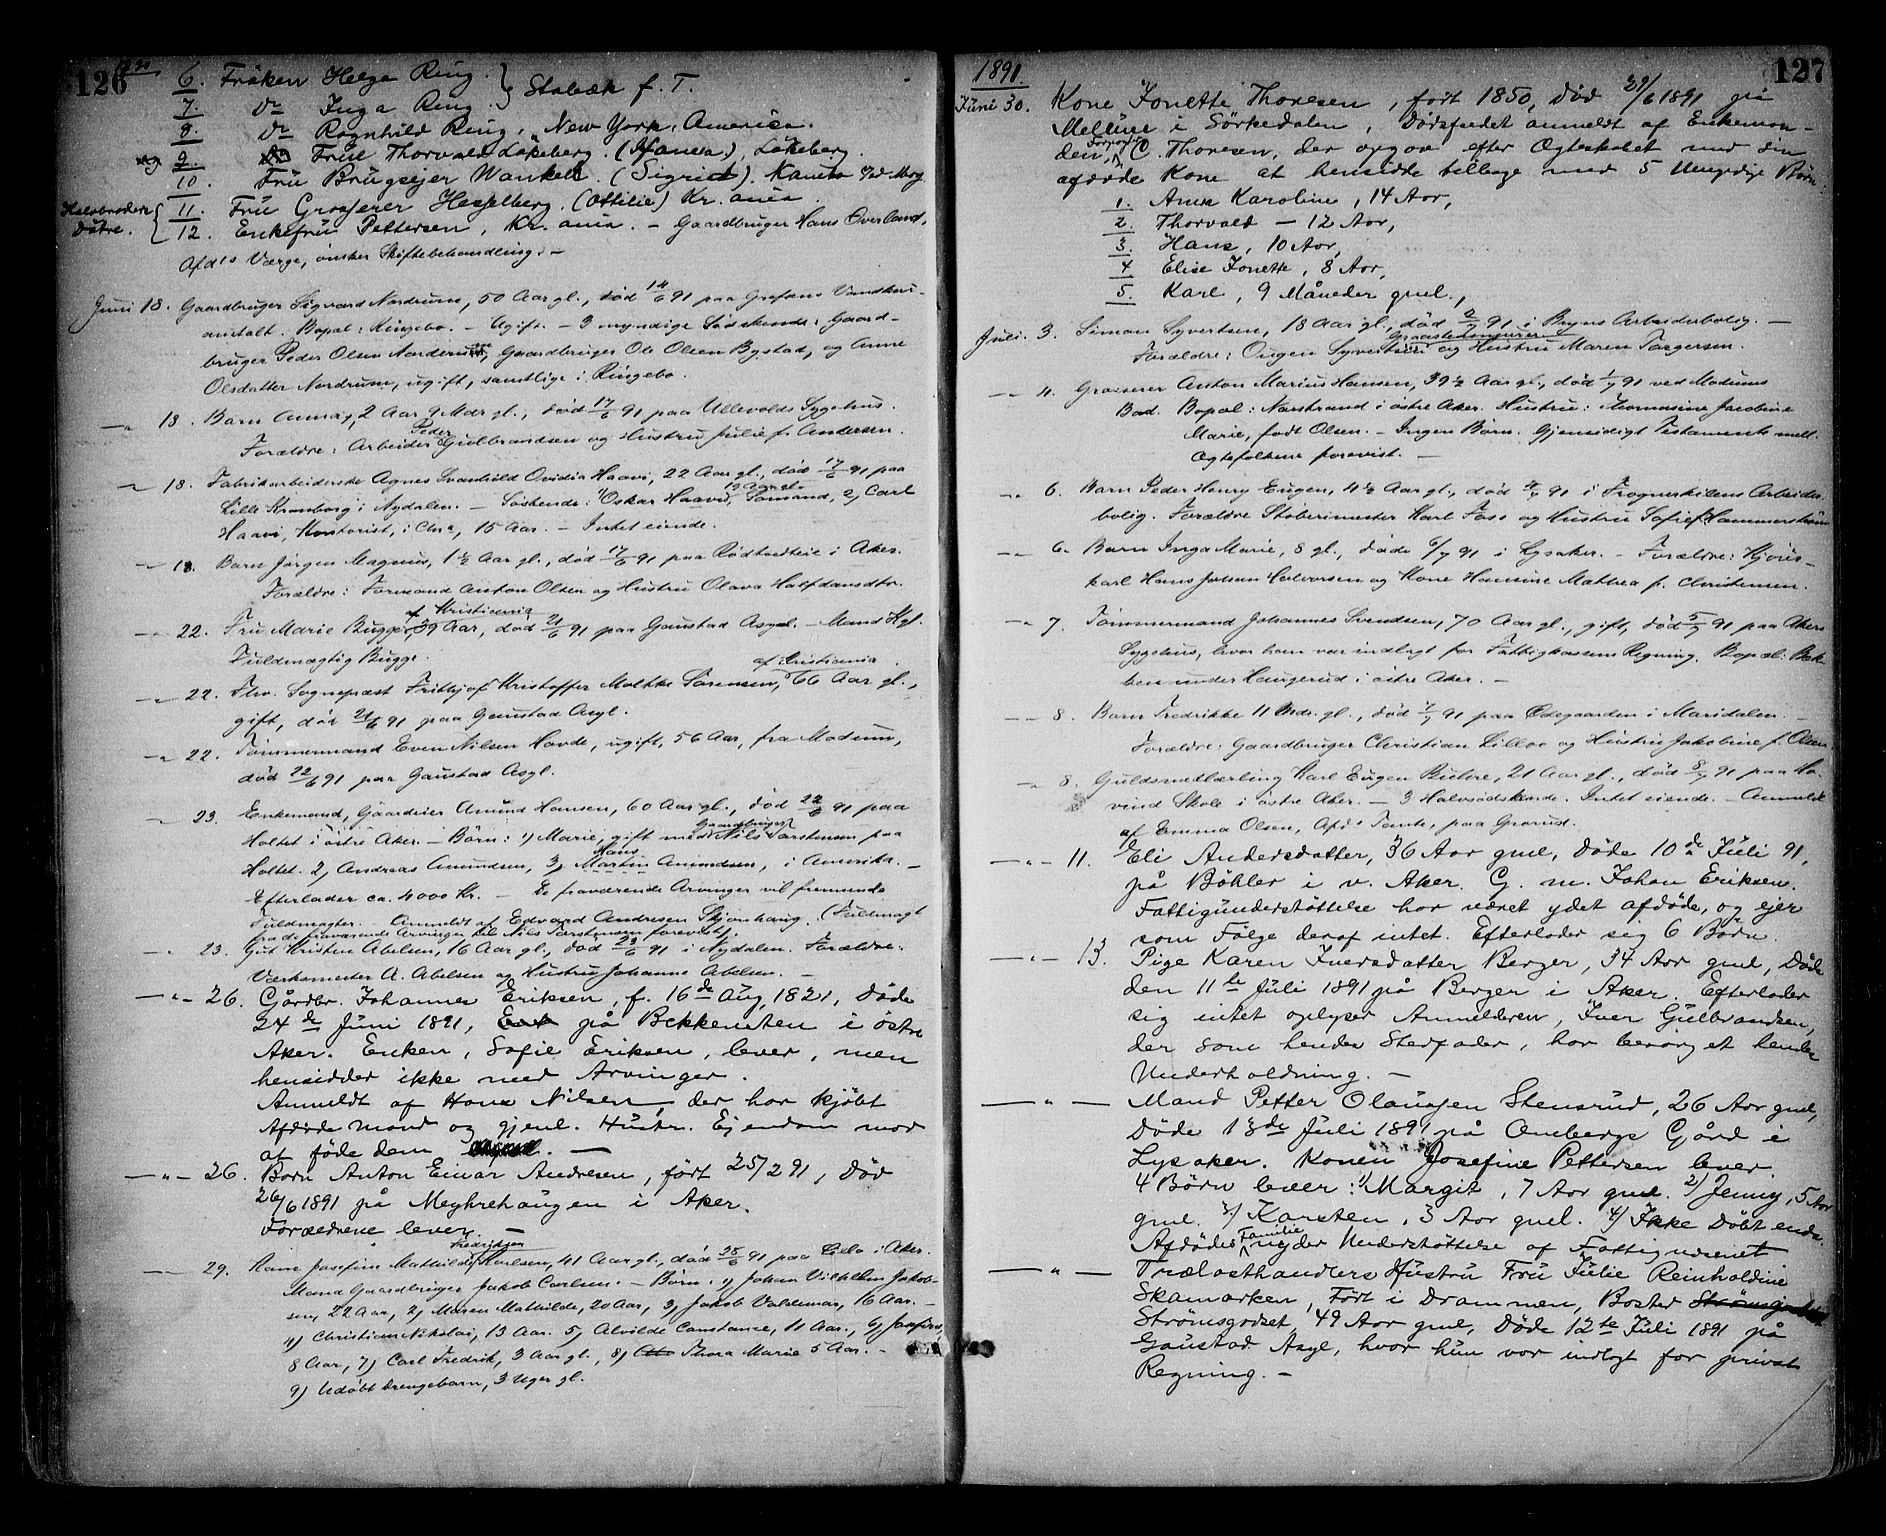 126
1891
6. Fröken Helga Ring. } Stabæk f. T.
7. do Inga Ring.
8. do Ragnhild Ring, New York, America.
9. Frue Thorvald Løkeberg. (Hanna), Løkeberg.
10. Fru Brugsejer Wankel. (Sigrid).
Halvbroders Døtre. { 11. Fru Grosserer Hesselberg. (Ottilie) Kr.ania.
12. Enkefru Pettersen, Kr.ania. – Gaardbruger Hans Overland,
Afd's Værge, ønsker Skiftebehandling. –
Juni 18. Gaardbruger Sigvard Nordrum, 50 Aar gl., død 14/6 91 paa Grefsens Vandkur-
anstalt. Bopæl: Ringebo. – Ugift. – 3 myndige Sødskende: Gaard-
bruger Peder Olsen Norderum, Gaardbruger Ole Olsen Bystad, og Anne
Olsdatter Nordrum, ugift, samtlige i Ringebo.
–„– 18. Barn Anna, 2 Aar 9 Mdr gl., død 17/6 91 paa Ullevolds Sygehus.
Forældre: Arbeider Peder Gulbrandsen og Hustru Julie f. Andersen.
–„– 18. Fabrikarbeiderske Agnes Svanhild Ovidia Haavi, 22 Aar gl., død 17/6 91 paa
Lille Kronborg i Nydalen. – Søskende: 1) Oskar Haavi, 19 Aar, Sømand, 2) Carl
Haavi, Kontorist, i Chra, 15 Aar. – Intet eiende.
–„– 18. Barn Jørgen Magnus, 1½ Aar gl., død 17/6 91 paa Rødtvedteie i Aker.
Forældre: Formand Anton Olsen og Hustru Olava Halfdansdtr.
–„– 22. Fru Marie Bugge, af Kristiania 39 Aar, død 21/6 91 paa Gaustad Asyl. – Mand Kgl.
Fuldmægtig Bugge.
–„– 22. Fhv. Sognepræst Frithjof Kristoffer Moltke Sørensen, af Kristiania 66 Aar gl.,
gift, død 21/6 91 paa Gaustad Asyl.
–„– 22. Tømmermand Even Nilsen Hovde, ugift, 56 Aar, fra Modum,
død 22/6 91 paa Gaustad Asyl.
–„– 23. Enkemand, Gaardeier Amund Hansen, 60 Aar gl., død 22/6 91 paa
Holtet i østre Aker. – Børn: 1) Marie, gift med Gaardbruger Nils Torstensen paa
Holtet. 2) Andreas Amundsen, 3) Hans Martin Amundsen, i Amerika. –
Efterlader ca. 4000 Kr. – De fraværende Arvinger vil fremsende
Fuldmagter. Anmeldt af Edvard Andresen Skjønhaug. (Fuldmagt
fra de fraværende Arvinger til Nils Torstensen forevist).
–„– 23. Gut Kristen Abelsen, 16 Aar gl., død 23/6 91 i Nydalen. Forældre:
Værksmester A. Abelsen og Hustru Johanne Abelsen. –
–„– 26. Gårdbr. Johannes Eriksen, f. 16de Aug, 1821, Døde
24de Juni 1891, på Bekkensten i østre
Aker. Enken, Sofie Eriksen, lever, men
hensidder ikke med Arvinger.
Anmeldt af Hans Nilsen, der har kjøbt
Afdøde mand og gjenl. Hustr. Ejendom mod
at føde dem. –
–„– 26. Barn Anton Einar Andresen, født 25/2 91, Død
26/6 1891 på Meyhrehaugen i Aker.
Forældrene lever. –
–„– 29. Kone Josefine Mathilde Fredriksen Karlsen, 41 Aar gl., død 28/6 91 paa Lilla i Aker.
Mand Gaardbruger Jakob Carlsen. – Børn: 1) Johan Vilhelm Jakob-
sen, 22 Aar, 2) Maren Mathilde, 20 Aar, 3) Jakob Valdemar, 16 Aar. –
4) Christian Nikolai, 13 Aar. 5) Alvilde Constance, 11 Aar., 6) Josefine,
8 Aar, 7) Carl Fredrik, 3 Aar gl., 8) Thora Marie 5 Aar. –
9) Udøbt Drengebarn, 3 Uger gl.
127
1891.
Juni 30. Kone Jonette Thoresen, født 1850, død 29/6 1891 på
i Sørkedalen, Dødsfaldet anmeldt af Enkeman-
den, C. Thoresen, der opgav efter Egteskabet med din
afdøde Kone at hensidde tilbage med 5 Umyndige Børn:
1. Anne Karoline, 14 Aar,
2. Thorvald – 12 Aar,
3. Hans, 10 Aar,
4 Elise Jonette, 8 Aar,
5. Karl, 9 Måneder gml.,
Juli. 3. Simon Syvertsen, 18 Aar gl., død 2/7 91 i Bryns Arbeiderbolig. –
Forældre: Graastensmurer Ougen Syvertsen og Hustru Maren Torgersen.
–„– 4. Grosserer Anton Marius Hansen, 39½ Aar gl., død 1/7 91 ved Modums
Bad. Bopæl: Norstrand i østre Aker. Hustru: Thomasine Jacobine
Marie, født Olsen. – Ingen Børn. Gjensidigt Testamente mell.
Ægtefolkene forevist. –
–„– 6. Barn Peder Henry Eugen, 4½ Aar gl., død 4/7 91 i Frognerkilens Arbeider-
bolig. Forældre Støberimester Karl Foss og Hustru Sofie f. Hammerstrøm
–„– 6. Barn Inga Marie, 8 gl., døde 6/7 91 i Lysaker. – Forældre: Kjøre-
karl Hans Johan Halvorsen og Kone Hansine Mathea f. Christensen.
–„– 7. Tømmermand Johannes Svendsen, 70 Aar gl., gift, død 5/7 91 paa Akers
Sygehus, hvor han var indlagt for Fattigkassens Regning. Bopæl: Bek-
ken under Haugerud i østre Aker. –
–„– 8. Barn Fredrikke 11 Mdr. gl., død 7/7 91 paa Ødegaarden i Maridalen. –
Forældre: Gaardbruger Christian Lilloe og Hustru Jakobine f. Olsen
–„– 8. Guldsmedlærling Karl Eugen 21 Aar gl., død 8/7 91 paa Ho-
vind Skole i østre Aker. – 3 Halvsødskende. Intet eiende. – Anmeldt
af Emma Olsen, Afd's Tante, paa Grorud.
–„– 11. Eli Andersdatter, 36 Aar gml, Døde 10de Juli 91,
på Bøhler i v. Aker. G. m. Johan Eriksen.
Fattigunderstøttelse har været ydet afdøde, og ejer
som Følge deraf intet. Efterlader sig 6 Børn.
–„– 13. Pige Karen Iversdatter Berger, 34 Aar gml, Døde
den 11te Juli 1891 på Berger i Aker. Efterlader
sig intet oplyser Anmelderen, Iver Gulbrandsen,
der som hendes Stedfader, har besørget hendes
Underholdning. –
–„– Mand Petter Olausen Stensrud, 26 Aar gml,
Døde 13de Juli 1891 på Gård i
Lysaker. Konen Josefine Pettersen lever
4 Børn lever: 1) Margit, 7 Aar gml. 2) Jenny, 5 Aar
gml. 3) Karsten, 3 Aar gml. 4) Ikke Døbt endnu.
Afdødes Familie nyder Understøttelse af Fattigvæsenet
–„– Trælasthandlers Hustru Fru Julie Reinholdine
Skamarken, Født i Drammen, Bosted
Strømsgodset, 49 Aar gml, Døde 12te Juli 1891 på
Gaustad Asyl, hvor hun var indlagt for privat
Regning. –